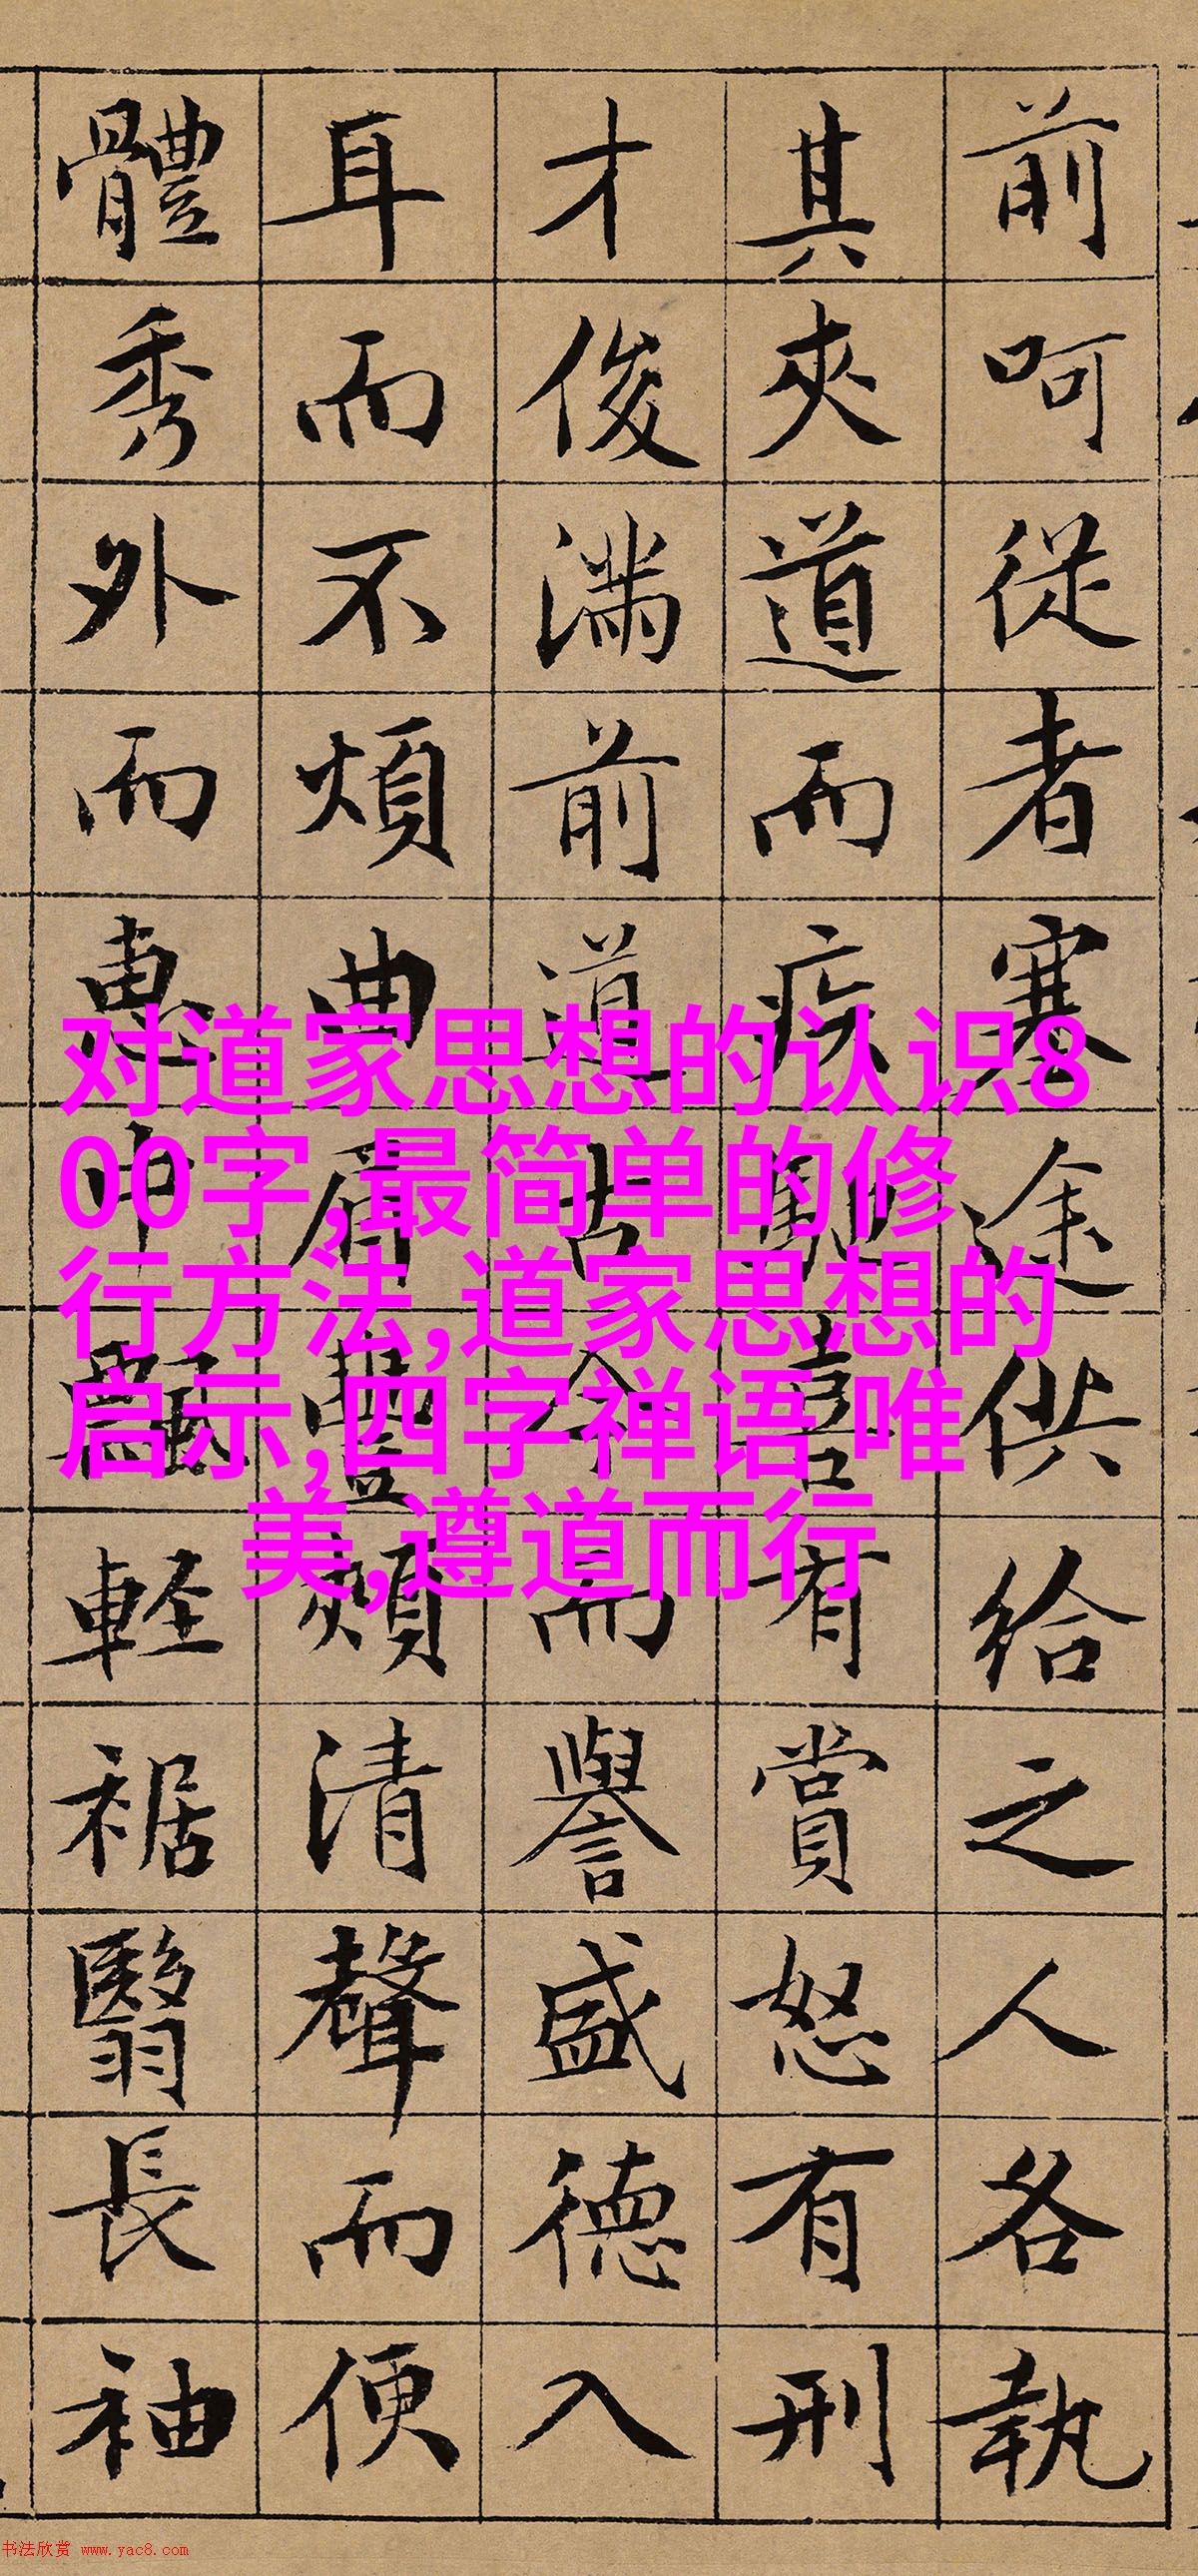 前呵從者塞途供給之人各執
其夾道而疾喜有賞怒有刑
才俊滿前道古今而譽盛德入
耳而不煩曲眉豐頰清聲而便
體秀外而惠中飄輕裾翳長袖
对道家思想的认识8
00字,最简单的修
行方法,道家思想的
启示,四字禅语 唯
美,遵道而行
书法欣赏 www.yac8.com